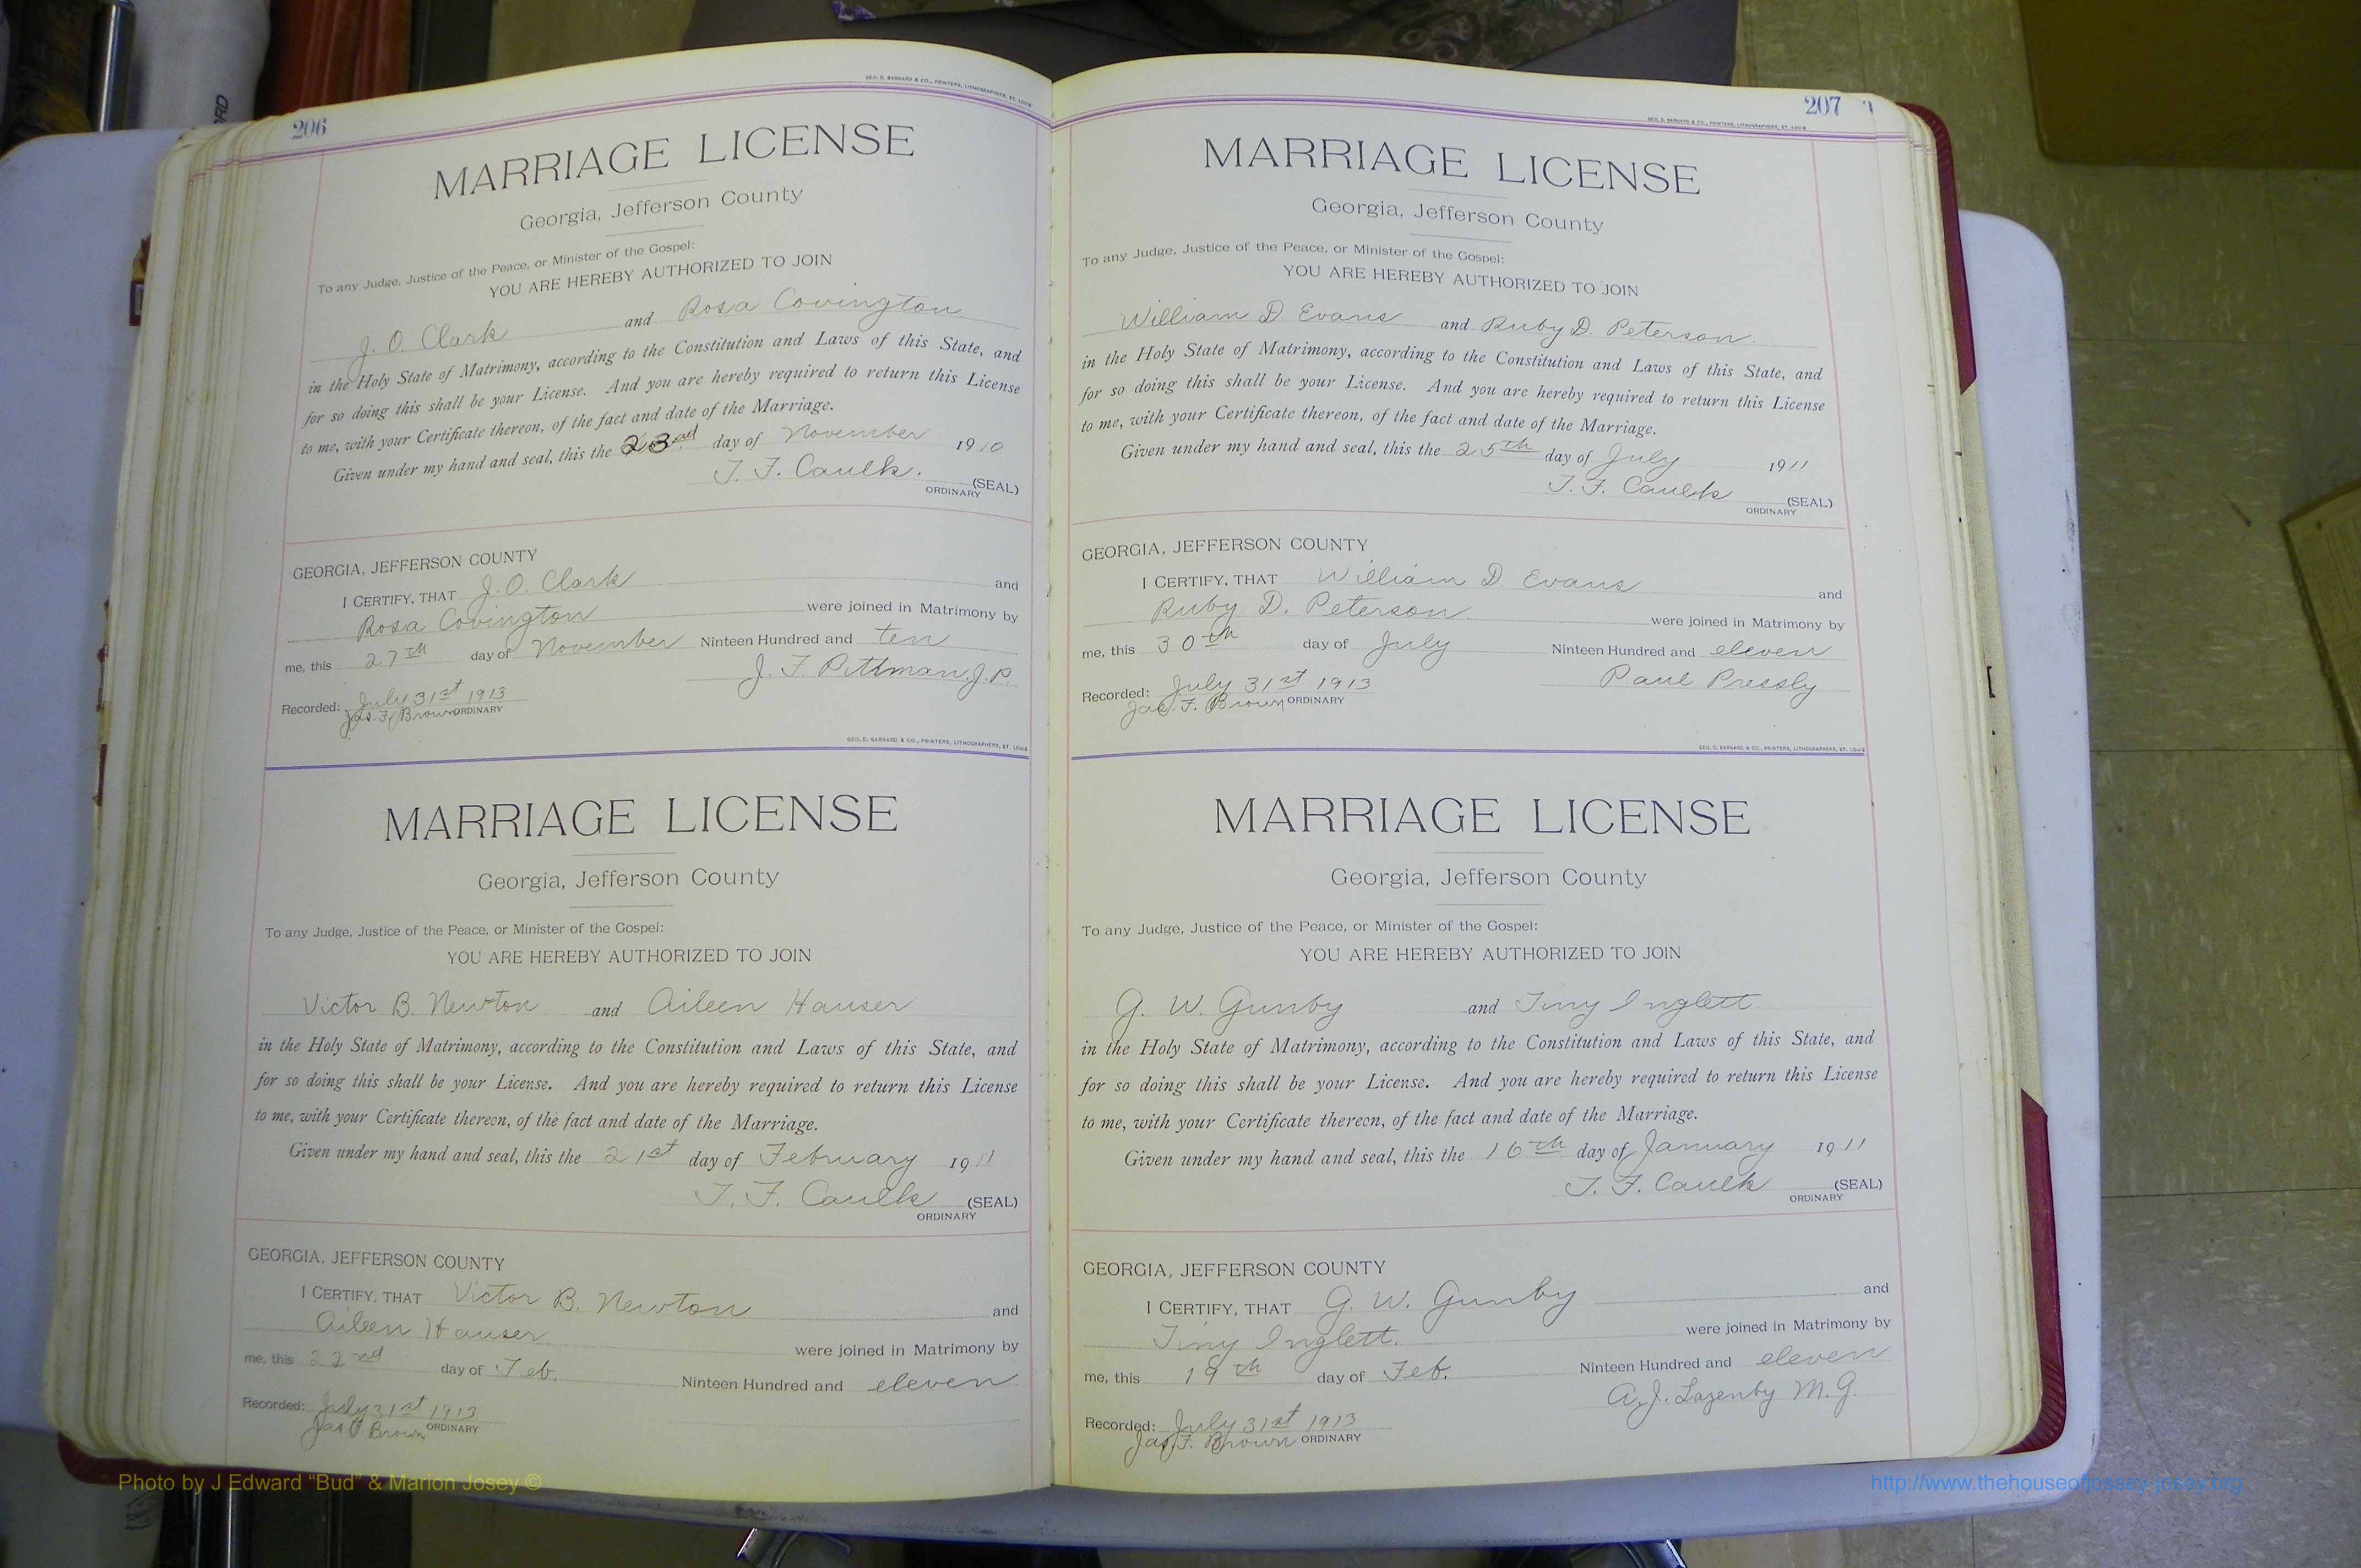 GEO. D. BARNARD & CO., PRINTERS, LITHOGRAPHERS, ST. LOUIS
206
MARRIAGE LICENSE
Georgia, Jefferson County
To any Judge, Justice of the Peace, or Minister of the Gospel:
YOU ARE HEREBY AUTHORIZED TO JOIN
J. O. Clark and Rosa Covington
in the Holy State of Matrimony, according to the Constitution and Laws of this State, and
for so doing this shall be your License. And you are hereby required to return this License
to me, with your Certificate thereon, of the fact and date of the Marriage.
Given under my hand and seal, this the 23rd day of November 1910
T. F. Caulk. (SEAL)
ORDINARY
GEORGIA, JEFFERSON COUNTY
I CERTIFY, THAT J. O. Clark and
Rosa Covington were joined in Matrimony by
me, this 27th day of November Ninteen Hundred and ten
J. F. Pittman, J. P.
Recorded: July 31st 1913
Jas. F. Brown ORDINARY
GEO. D. BARNARD & CO., PRINTERS, LITHOGRAPHERS, ST. LOUIS
MARRIAGE LICENSE
Georgia, Jefferson County
To any Judge, Justice of the Peace, or Minister of the Gospel:
YOU ARE HEREBY AUTHORIZED TO JOIN
Victor B. Newton and Aileen Hauser
in the Holy State of Matrimony, according to the Constitution and Laws of this State, and
for so doing this shall be your License. And you are hereby required to return this License
to me, with your Certificate thereon, of the fact and date of the Marriage.
Given under my hand and seal, this the 21st day of February 1911
T. F. Caulk (SEAL)
ORDINARY
GEORGIA, JEFFERSON COUNTY
I CERTIFY, THAT Victor B. Newton and
Aileen Hauser were joined in Matrimony by
me, this 22nd day of Feb. Ninteen Hundred and eleven
Recorded: July 31st 1913
Jas F Brown ORDINARY
207
GEO. D. BARNARD & CO., PRINTERS, LITHOGRAPHERS, ST. LOUIS
MARRIAGE LICENSE
Georgia, Jefferson County
To any Judge, Justice of the Peace, or Minister of the Gospel:
YOU ARE HEREBY AUTHORIZED TO JOIN
William D. Evans and Ruby D. Peterson.
in the Holy State of Matrimony, according to the Constitution and Laws of this State, and
for so doing this shall be your License. And you are hereby required to return this License
to me, with your Certificate thereon, of the fact and date of the Marriage.
Given under my hand and seal, this the 25th day of July 1911
T. F. Caulk (SEAL)
ORDINARY
GEORGIA, JEFFERSON COUNTY
I CERTIFY, THAT William D. Evans and
Ruby D. Peterson were joined in Matrimony by
me, this 30th day of July Ninteen Hundred and eleven
Paul Pressly
Recorded: July 31st 1913
Jas. F. Brown ORDINARY
GEO. D. BARNARD & CO., PRINTERS, LITHOGRAPHERS, ST. LOUIS
MARRIAGE LICENSE
Georgia, Jefferson County
To any Judge, Justice of the Peace, or Minister of the Gospel:
YOU ARE HEREBY AUTHORIZED TO JOIN
G. W. Gunby and Tiny Inglett.
in the Holy State of Matrimony, according to the Constitution and Laws of this State, and
for so doing this shall be your License. And you are hereby required to return this License
to me, with your Certificate thereon, of the fact and date of the Marriage.
Given under my hand and seal, this the 16th day of January 1911
T. F. Caulk (SEAL)
ORDINARY
GEORGIA, JEFFERSON COUNTY
I CERTIFY, THAT G. W. Gunby and
Tiny Inglett. were joined in Matrimony by
me, this 19th day of Feb. Ninteen Hundred and eleven
A. J. Lazenby M. G.
Recorded: July 31st 1913
Jas. F. Brown ORDINARY
Photo by J Edward “Bud” & Marion Josey ©
http://www.thehouseofjossey-josey.org